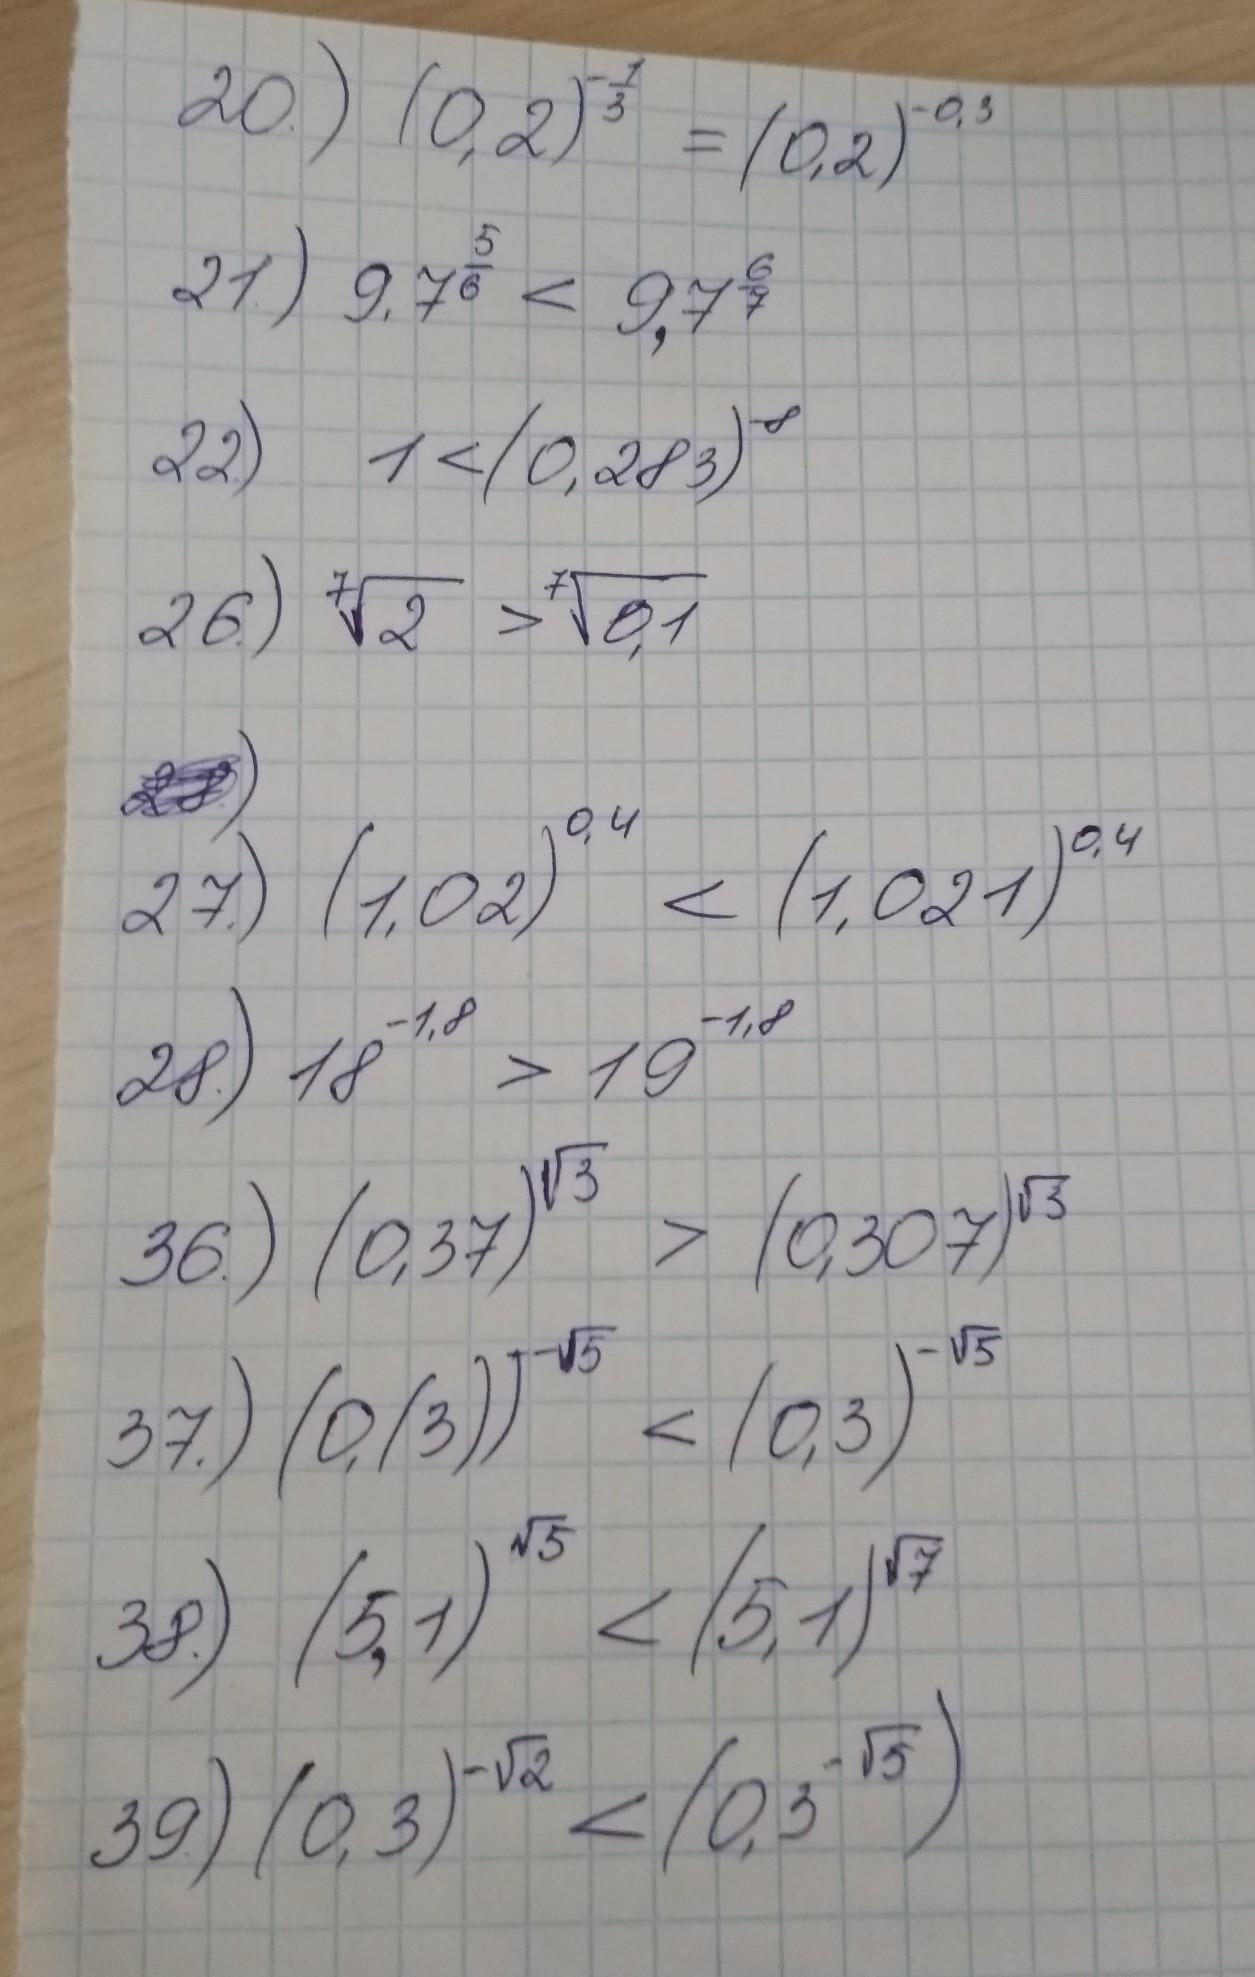 20.) (0,2)^{-\frac{1}{3}} = (0,2)^{-0,3}
21.) 9,7^{\frac{5}{6}} < 9,7^{\frac{6}{7}}
22.) 1 < (0,283)^{-8}
26.) \sqrt[7]{2} > \sqrt[7]{0,1}
27.) (1,02)^{0,4} < (1,021)^{0,4}
28.) 18^{-1,8} > 19^{-1,8}
36.) (0,37)^{\sqrt{3}} > (0,307)^{\sqrt{3}}
37.) (0,(3))^{-\sqrt{5}} < (0,3)^{-\sqrt{5}}
38.) (5,1)^{\sqrt{5}} < (5,1)^{\sqrt{7}}
39.) (0,3)^{-\sqrt{2}} < (0,3^{-\sqrt{5}})